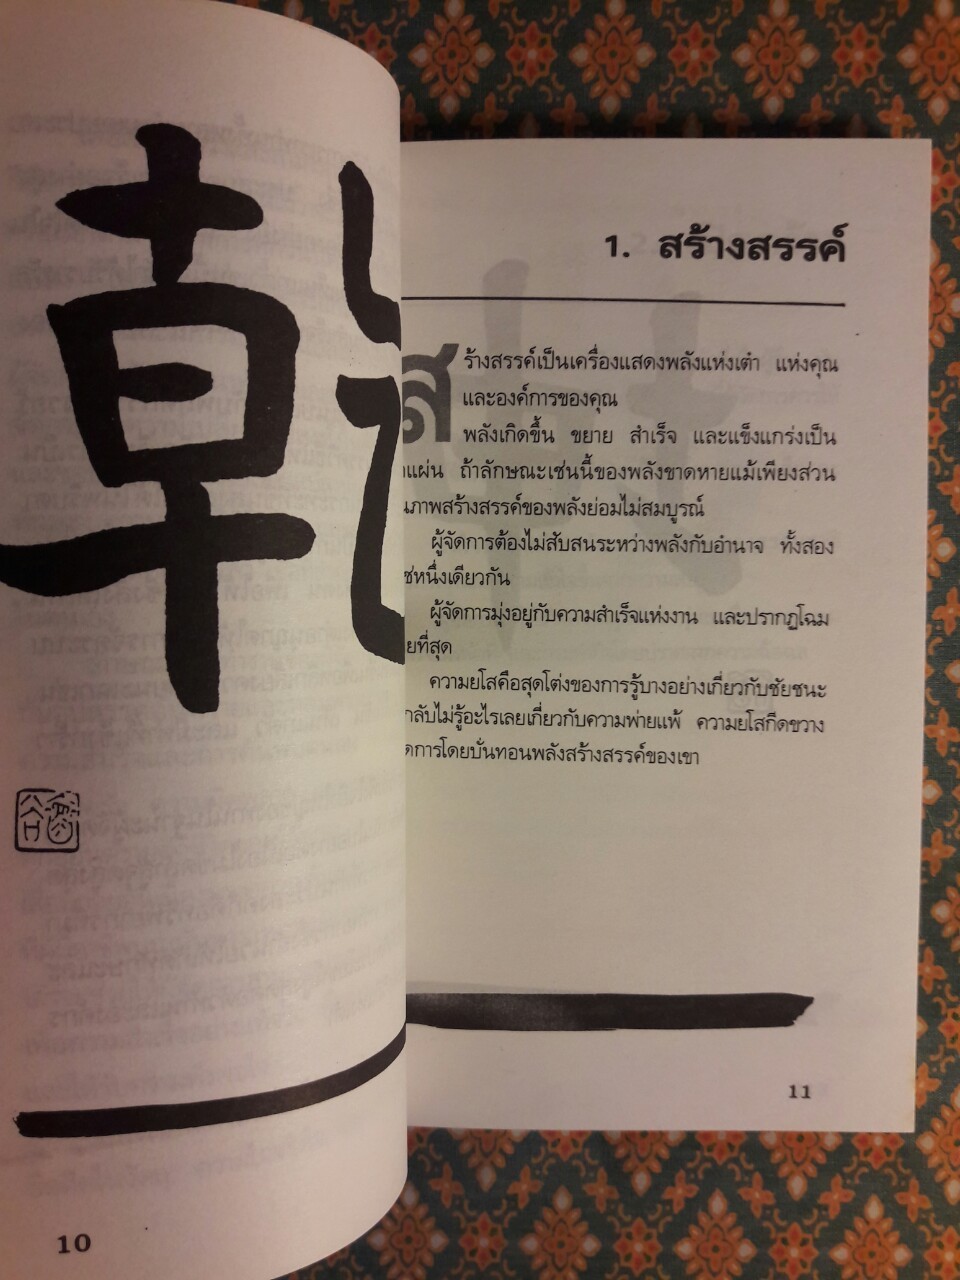 乾
10
1. สร้างสรรค์
สร้างสรรค์เป็นเครื่องแสดงพลังแห่งเต๋า แห่งคุณ
และองค์การของคุณ
พลังเกิดขึ้น ขยาย สำเร็จ และแข็งแกร่งเป็น
แผ่น ถ้าลักษณะเช่นนี้ของพลังขาดหายแม้เพียงส่วน
ภาพสร้างสรรค์ของพลังย่อมไม่สมบูรณ์
ผู้จัดการต้องไม่สับสนระหว่างพลังกับอำนาจ ทั้งสอง
หนึ่งเดียวกัน
ผู้จัดการมุ่งอยู่กับความสำเร็จแห่งงาน และปรากฏโฉม
ที่สุด
ความยโสคือสุดโต่งของการรู้บางอย่างเกี่ยวกับชัยชนะ
กลับไม่รู้อะไรเลยเกี่ยวกับความพ่ายแพ้ ความยโสกีดขวาง
การโดยบั่นทอนพลังสร้างสรรค์ของเขา
11